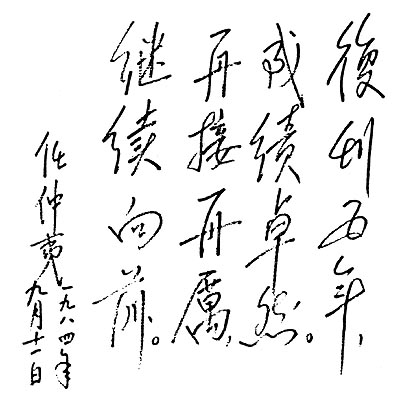 復刊五年，
成绩卓然。
再接再厲，
继续向前。
任仲夷
一九八四年
九月十一日